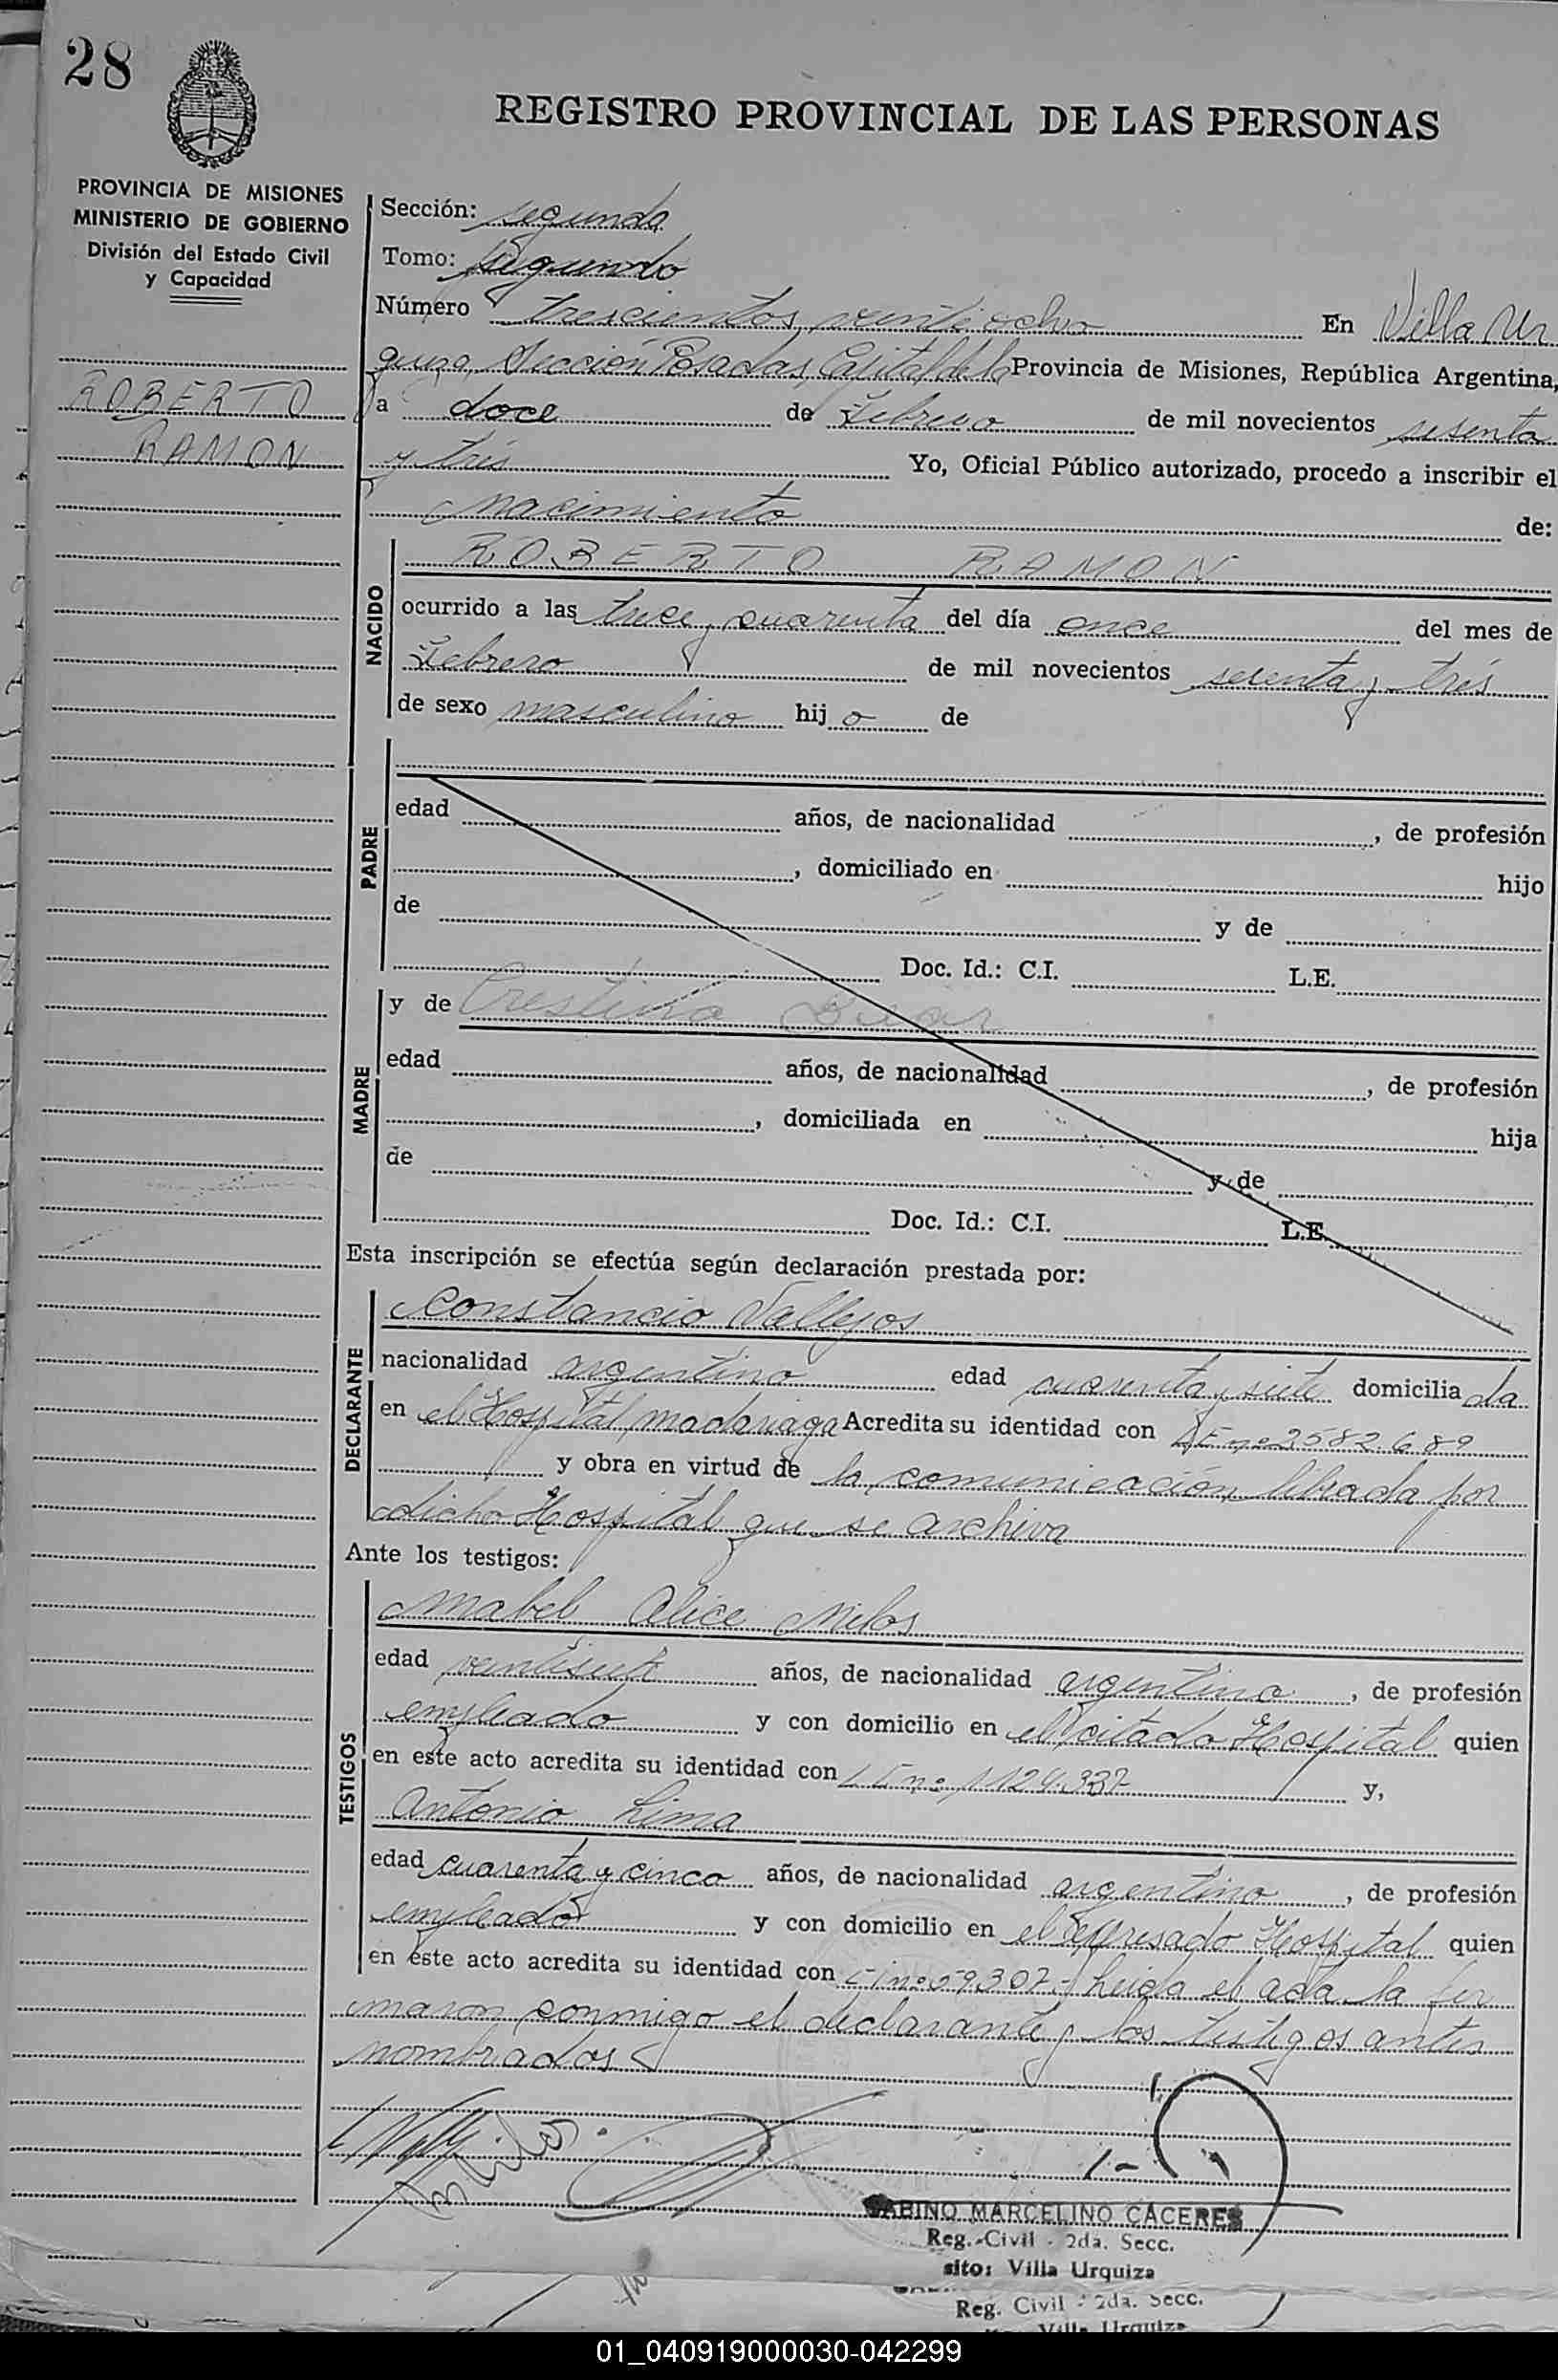 28
REGISTRO PROVINCIAL DE LAS PERSONAS
PROVINCIA DE MISIONES
MINISTERIO DE GOBIERNO
División del Estado Civil
y Capacidad
ROBERTO
RAMON
Sección: segunda
Tomo: segundo
Número trescientos veintiocho En Villa Ur
quiza, Sección Posadas, Capital de la Provincia de Misiones, República Argentina,
a doce de Febrero de mil novecientos sesenta
y trés Yo, Oficial Público autorizado, procedo a inscribir el
nacimiento de:
NACIDO
ROBERTO RAMON
ocurrido a las trece y cuarenta del día once del mes de
Febrero de mil novecientos sesenta y trés
de sexo masculino hijo de
PADRE
edad años, de nacionalidad , de profesión
, domiciliado en hijo
de y de
Doc. Id.: C.I. L.E.
MADRE
y de Crestina
edad años, de nacionalidad , de profesión
, domiciliada en hija
de y de
Doc. Id.: C.I. L.E.
Esta inscripción se efectúa según declaración prestada por:
DECLARANTE
Constancio Vallejos
nacionalidad argentino edad cuarenta y siete domiciliado
en el Hospital Madariaga Acredita su identidad con nº 3582.689
y obra en virtud de la comunicación librada por
dicho Hospital que se archiva
Ante los testigos:
TESTIGOS
Mabel Alice Milos
edad veintisiete años, de nacionalidad argentina, de profesión
empleado y con domicilio en el citado Hospital quien
en este acto acredita su identidad con nº 1124.337 y,
Antonio Lima
edad cuarenta y cinco años, de nacionalidad argentino, de profesión
empleado y con domicilio en el expresado Hospital quien
en este acto acredita su identidad con nº 59307 - Leida el acta la fir
maron conmigo el declarante y los testigos antes
nombrados
SABINO MARCELINO CACERES
Reg. Civil - 2da. Secc.
sito: Villa Urquiza
Reg. Civil - 2da. Secc.
Villa Urquiza
01_040919000030-042299